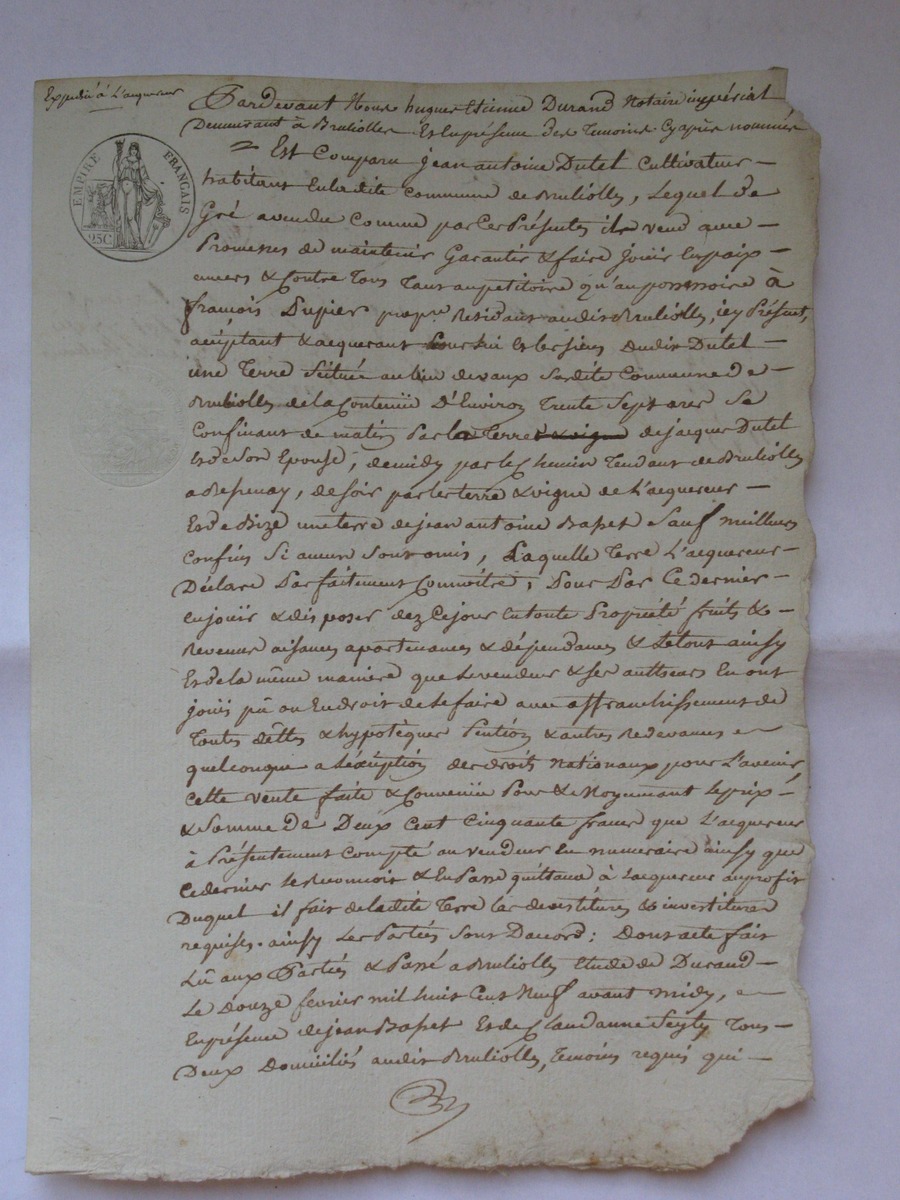 Expedié à L'acquereur
Pardevant Nous hugues Etienne Durand Notaire impérial
Demeurant à Brulliolles Et En présence des Temoins Cyaprès nommés
EMPIRE FRANÇAIS
25C
Est Comparu jean antoine Dutel Cultivateur
habitant En ladite Commune de Brulliolles, Lequel de
Gré a vendu Comme par Ces Présentes il vend avec
Promesses de maintenir Garantir & faire jouir En paix
envers & Contre Tous Tant au petitoire qu'au possessoire à
françois Dupier propre Residant audit Brulliolles, icy Présent,
acceptant & acquerant Pour lui Et les siens dudit Dutel
une Terre Située au lieu de vaux Susdite Commune de
Brulliolles de la Contenüe D'Environ Trente Sept ares Se
Confinant de matin Par la Terre & vigne de jacques Dutel
Et de Son Epouse; de midy par le Chemin Tendant de Brulliolles
a Bessenay, de soir par les terre & vigne de L'acquereur
Et de Bize une terre de jean antoine Bapet Sauf meilleurs
Confins Si aucun Sont omis, Laquelle Terre L'acquereur
Déclare Parfaitement Connoitre; Pour Par Ce dernier
en jouir & disposer dez Ce jour En toute Propriété fruits &
Revenus aisances apartenances & dépendances & Le tout ainsy
Et de la même maniere que Le vendeur & ses autheurs En ont
joui pû ou En droit de le faire avec affranchissement de
Toutes dêttes & hypotèques Pention & autres Redevances
quelconque a L'éxéption des droits Nationaux pour L'avenir
Cette vente faite & Convenüe Pour & Moyennant Le prix
& Somme de Deux Cent Cinquante francs que L'acquereur
à Présentement Compté au vendeur En numeraire ainsy que
Ce dernier Le Reconnoit & En Passe quittance à L'acquereur au profit
Duquel il fait de ladite Terre les devestitures & investitures
requises. ainsy Les Parties Sont Daccord; Dont acte fait
Lû aux Parties & Passé a Brulliolles Etude de Durand
Le Douze fevrier mil huit Cent Neuf avant midy,
En présence de jean Bapet Et de Claudanne Seyty Tous
Deux Domiciliés audit Brulliolles, Temoins requis qui